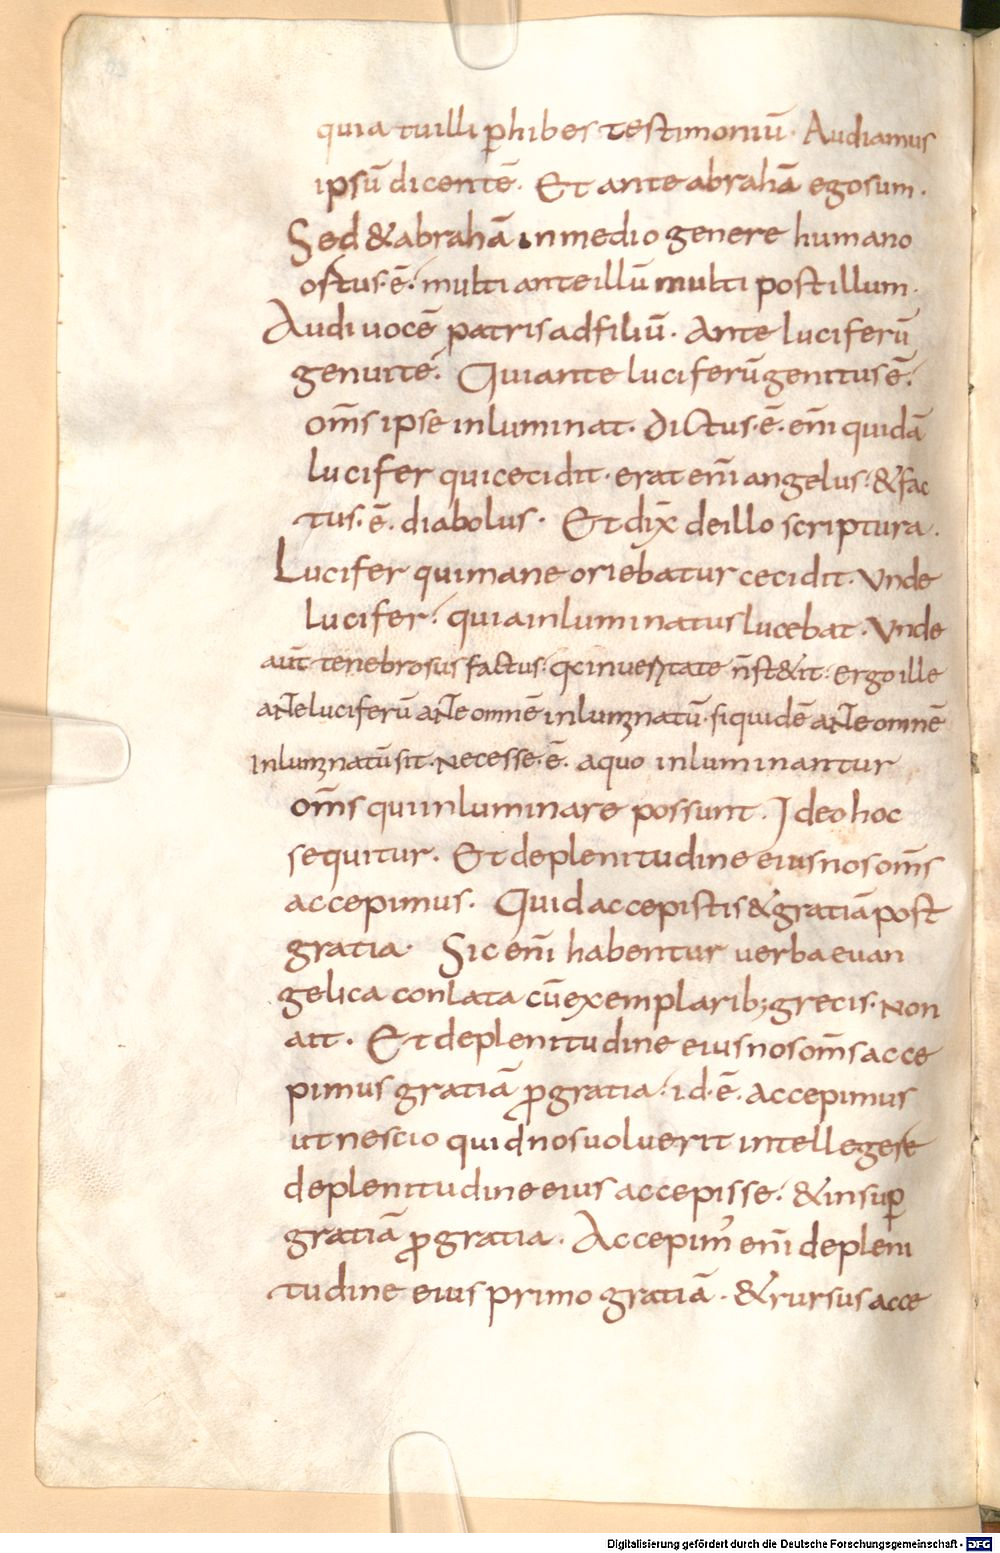 quia tu illi ꝑhibes testimoniū· Audiamus
ipsū dicentē· Et ante abrahā ego sum·
Sed & abrahā in medio genere humano
ostus·ē· multi ante illū multi post illum·
Audi uocē patris ad filiū· Ante luciferū
genui tē· Qui ante luciferū genitus ē·
om̄s ipse inluminat· dictus·ē· em̄ quidā
lucifer qui cecidit· erat em̄ angelus· & fac
tus·ē· diabolus· Et dix̄ de illo scriptura·
Lucifer qui mane oriebatur cecidit· Vnde
lucifer· quia inluminatus lucebat· Vnde
aut̄ tenebrosus factus· qa in ueritate n̄ st&it· ergo ille
ante luciferū ante omnē inluminatū· siquidē ante omnē
Inluminatū sit· Necesse·ē· a quo inluminantur
om̄s qui inluminare possunt· Ideo hoc
sequitur· Et de plenitudine eius nos om̄s
accepimus· Quid accepistis & gratiā post
gratia· Sic em̄ habentur uerba euan
gelica conlata cū exemplarib; grecis· Non
ait· Et de plenitudine eius nos om̄s acce
pimus gratiā ꝓ gratia· id·ē· accepimus
ut nescio quid nos uoluerit intellegere
de plenitudine eius accepisse· & insuꝑ
gratiā ꝓ gratia· Accepim' em̄ de pleni
tudine eius primo gratiā· & rursus acce
Digitalisierung gefördert durch die Deutsche Forschungsgemeinschaft - DFG